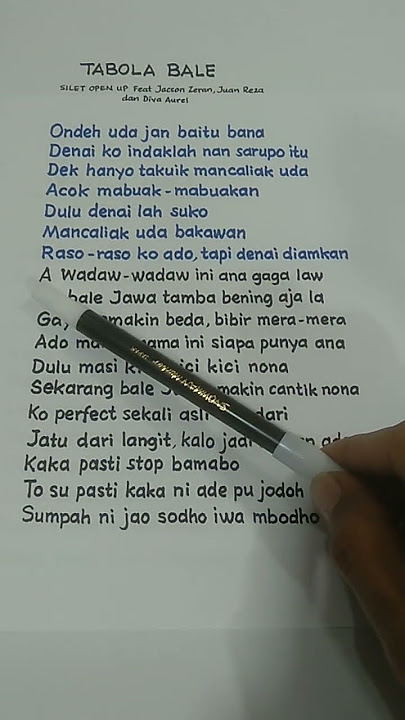 TABOLA BALE
SILET OPEN UP Feat Jacson Zeran, Juan Reza
dan Diva Aurel
Ondeh uda jan baitu bana
Denai ko indaklah nan sarupo itu
Dek hanyo takuik mancaliak uda
Acok mabuak-mabuakan
Dulu denai lah suko
Mancaliak uda bakawan
Raso-raso ko ado, tapi denai diamkan
A Wadaw-wadaw ini ana gaga law
bale Jawa tamba bening aja la
makin beda, bibir mera-mera
Ado ini siapa punya ana
Dulu masi kici nona
Sekarang bale makin cantik nona
Ko perfect sekali asli dari
Jatu dari langit, kalo
Kaka pasti stop bamabo
To su pasti kaka ni ade pu jodoh
Sumpah ni jao sodho iwa mbodho